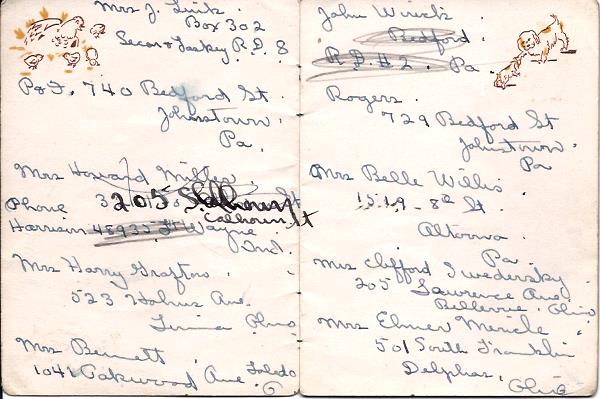 Mrs J. Link.
Box 302
Secor & Laskey R.D. 8
P & F. 740 Bedford St.
Johnstown.
Pa.
Mrs Howard Miller
205 Calhoun St
Phone
Harrison 48933 Ft Wayne
Ind.
Mrs Harry Grafton.
523 Ave.
Lima Ohio
Mrs Bennett.
1041 Oakwood Ave. Toledo
O
John Wirick
Bedford.
R.D. #2. Pa.
Rogers.
729 Bedford St
Johnstown.
Pa
Mrs Belle Willis
1519 - 8th St.
Altoona
Pa.
Mrs Clifford Swedersky
205 Lawrence Ave.
Bellevue. Ohio
Mrs Elmer Mericle
501 South Franklin
Delphos.
Ohio